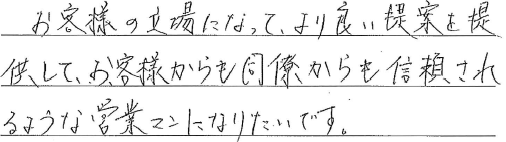 お客様の立場になって、より良い提案を提
供して、お客様からも同僚からも信頼され
るような営業マンになりたいです。